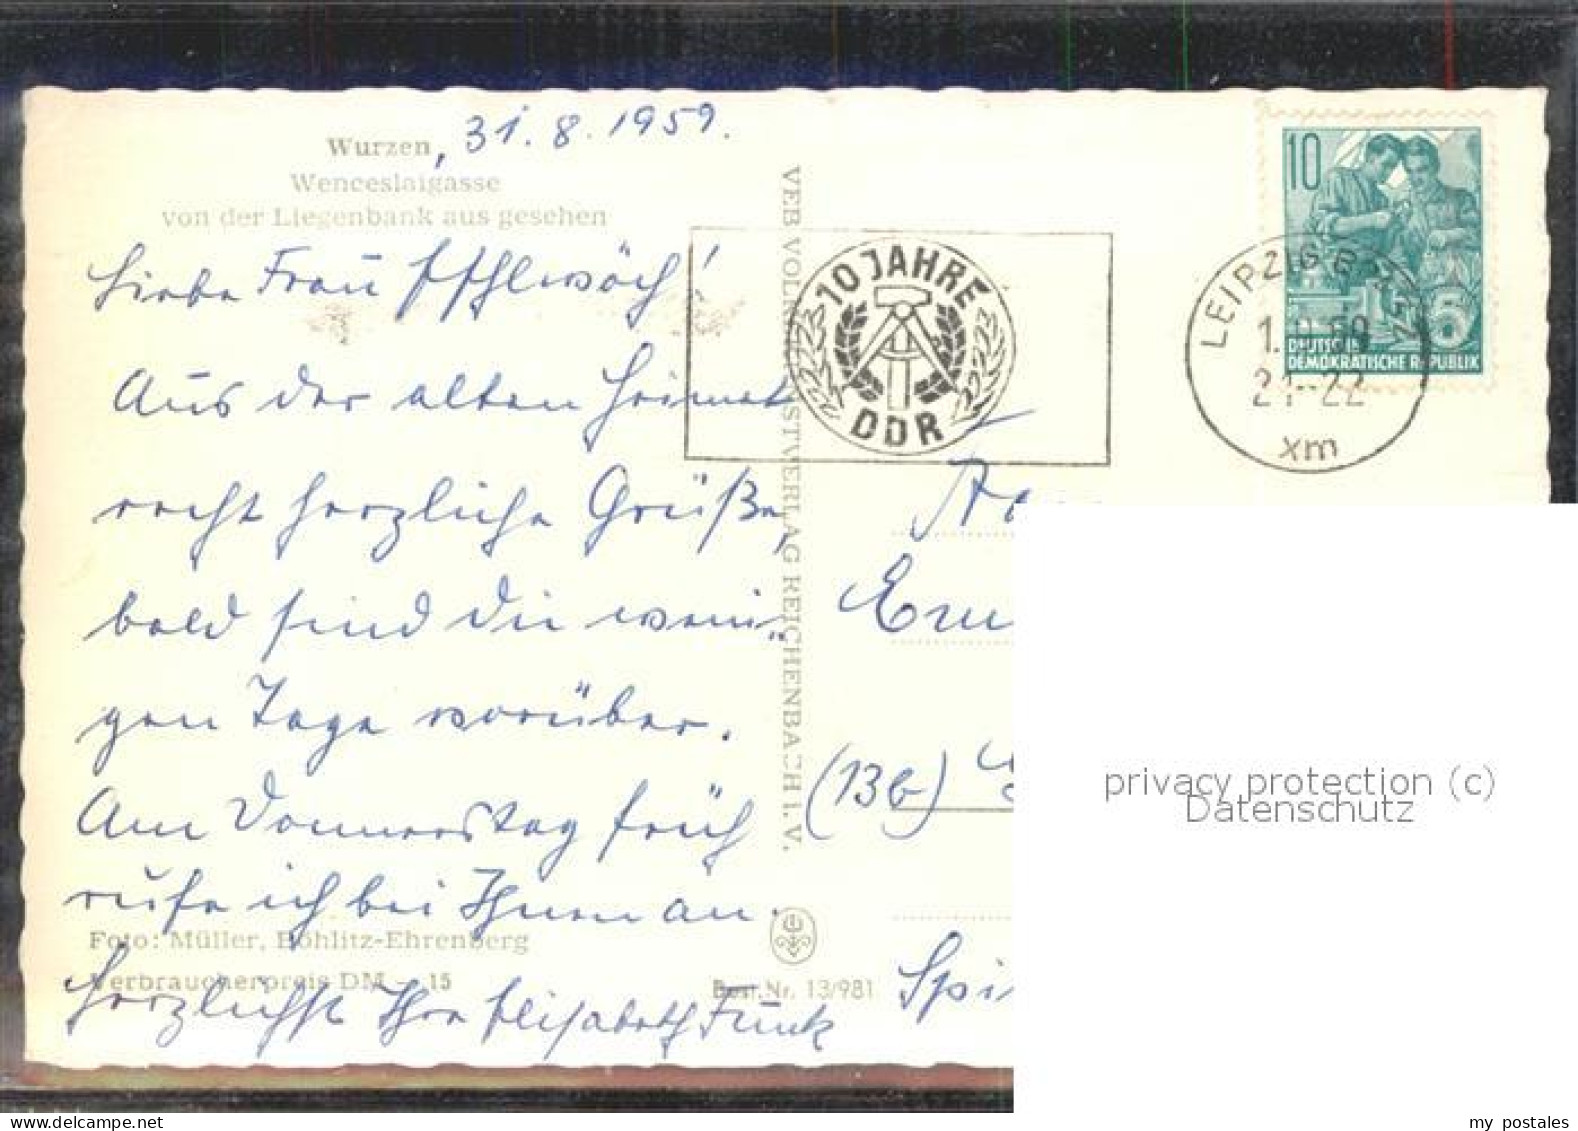 Wurzen, 31. 8. 1959.
Wenceslaigasse
von der Liegenbank aus gesehen
Liebe Frau
Aus der alten Heimat
recht herzliche Grüße,
bald sind die weni-
gen Tage vorüber.
Am Donnerstag früh
rufe ich bei Ihnen an.
Foto: Müller, Böhlitz-Ehrenberg
Verbraucherpreis DM -.15
Herzlichst Ihre Elisabeth Funk
VEB VOLKSKUNSTVERLAG REICHENBACH i. V.
Best.Nr. 13/981
10 JAHRE
DDR
LEIPZIG
21-22
xm
10
DEUTSCHE
DEMOKRATISCHE REPUBLIK
(13b)
privacy protection (c)
Datenschutz
my postales